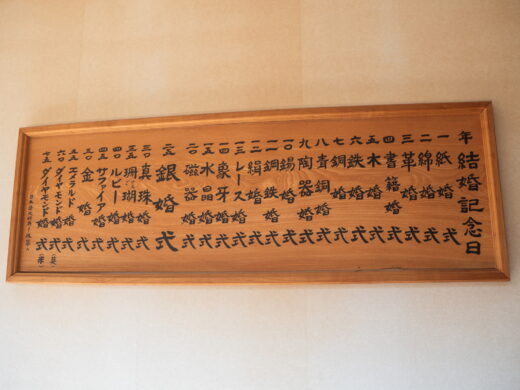 年 結婚記念日
一 紙婚式
二 綿婚式
三 革婚式
四 書籍婚式
五 木婚式
六 鉄婚式
七 銅婚式
八 青銅婚式
九 陶器婚式
一〇 錫婚式
一一 鋼鉄婚式
一二 絹婚式
一三 レース婚式
一四 象牙婚式
一五 水晶婚式
二〇 磁器婚式
二五 銀婚式
三〇 真珠婚式
三五 珊瑚婚式
四〇 ルビー婚式
四五 サファイア婚式
五〇 金婚式
五五 エメラルド婚式
六〇 ダイヤモンド婚式(英)
七五 ダイヤモンド婚式(米)